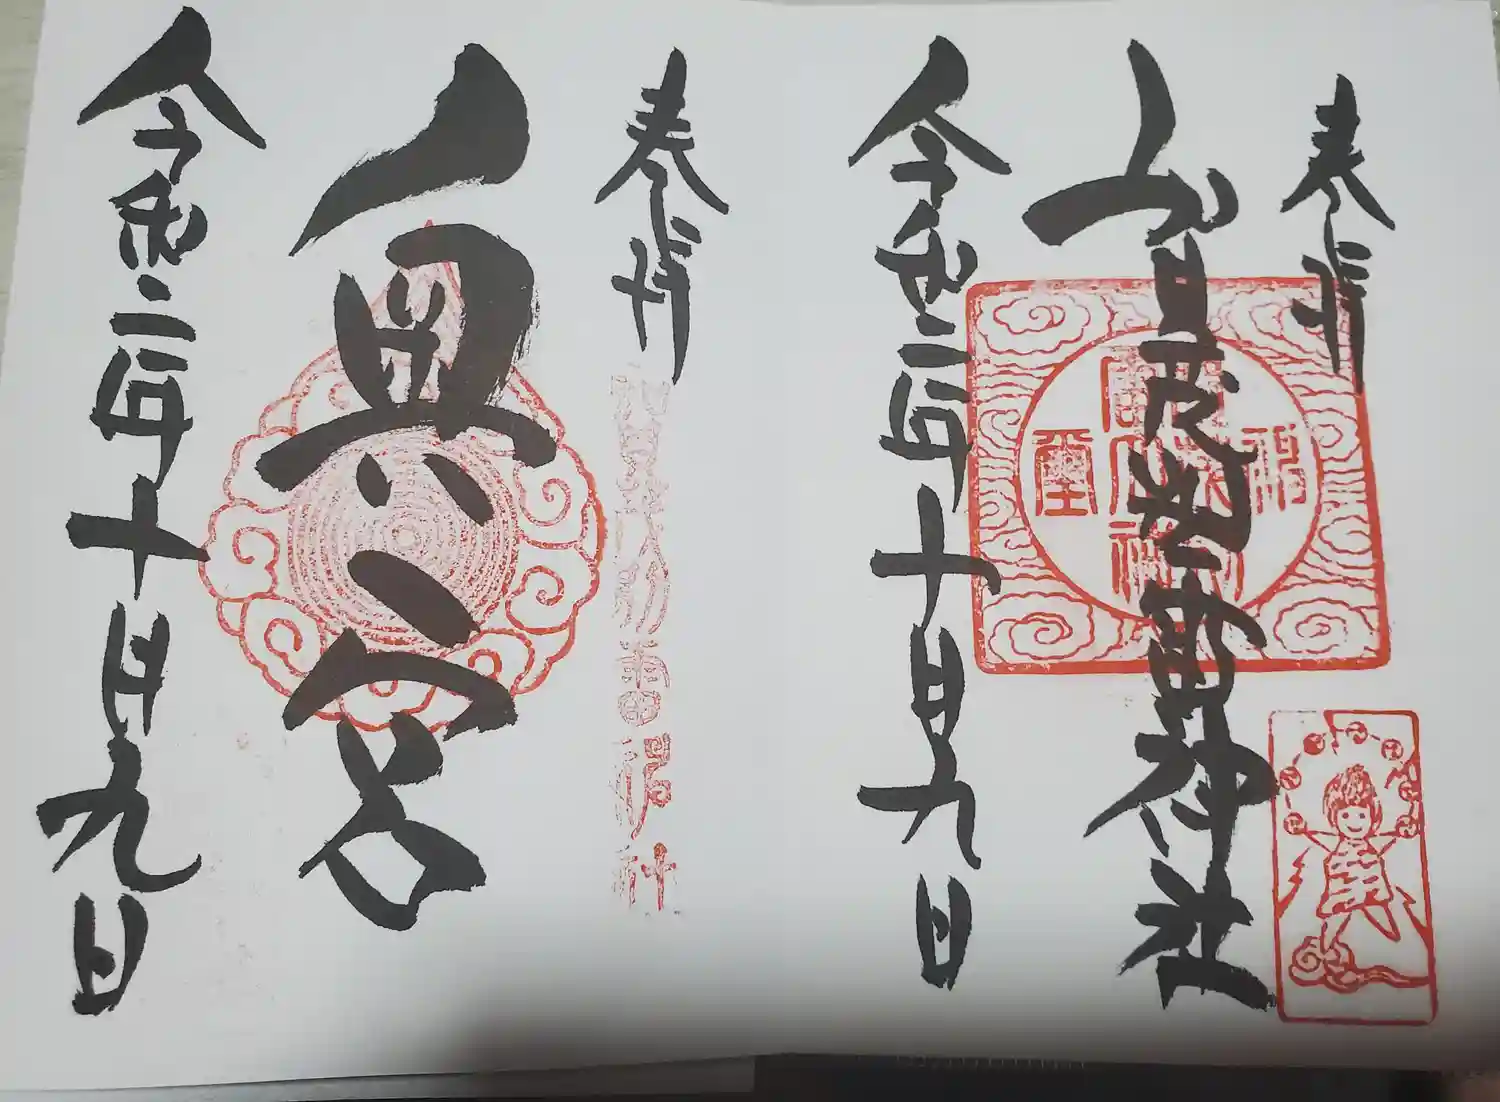 奉拝
賀茂別雷神社
令和二年十月九日
奉拝
賀茂別雷神社
奥宮
令和二年十月九日